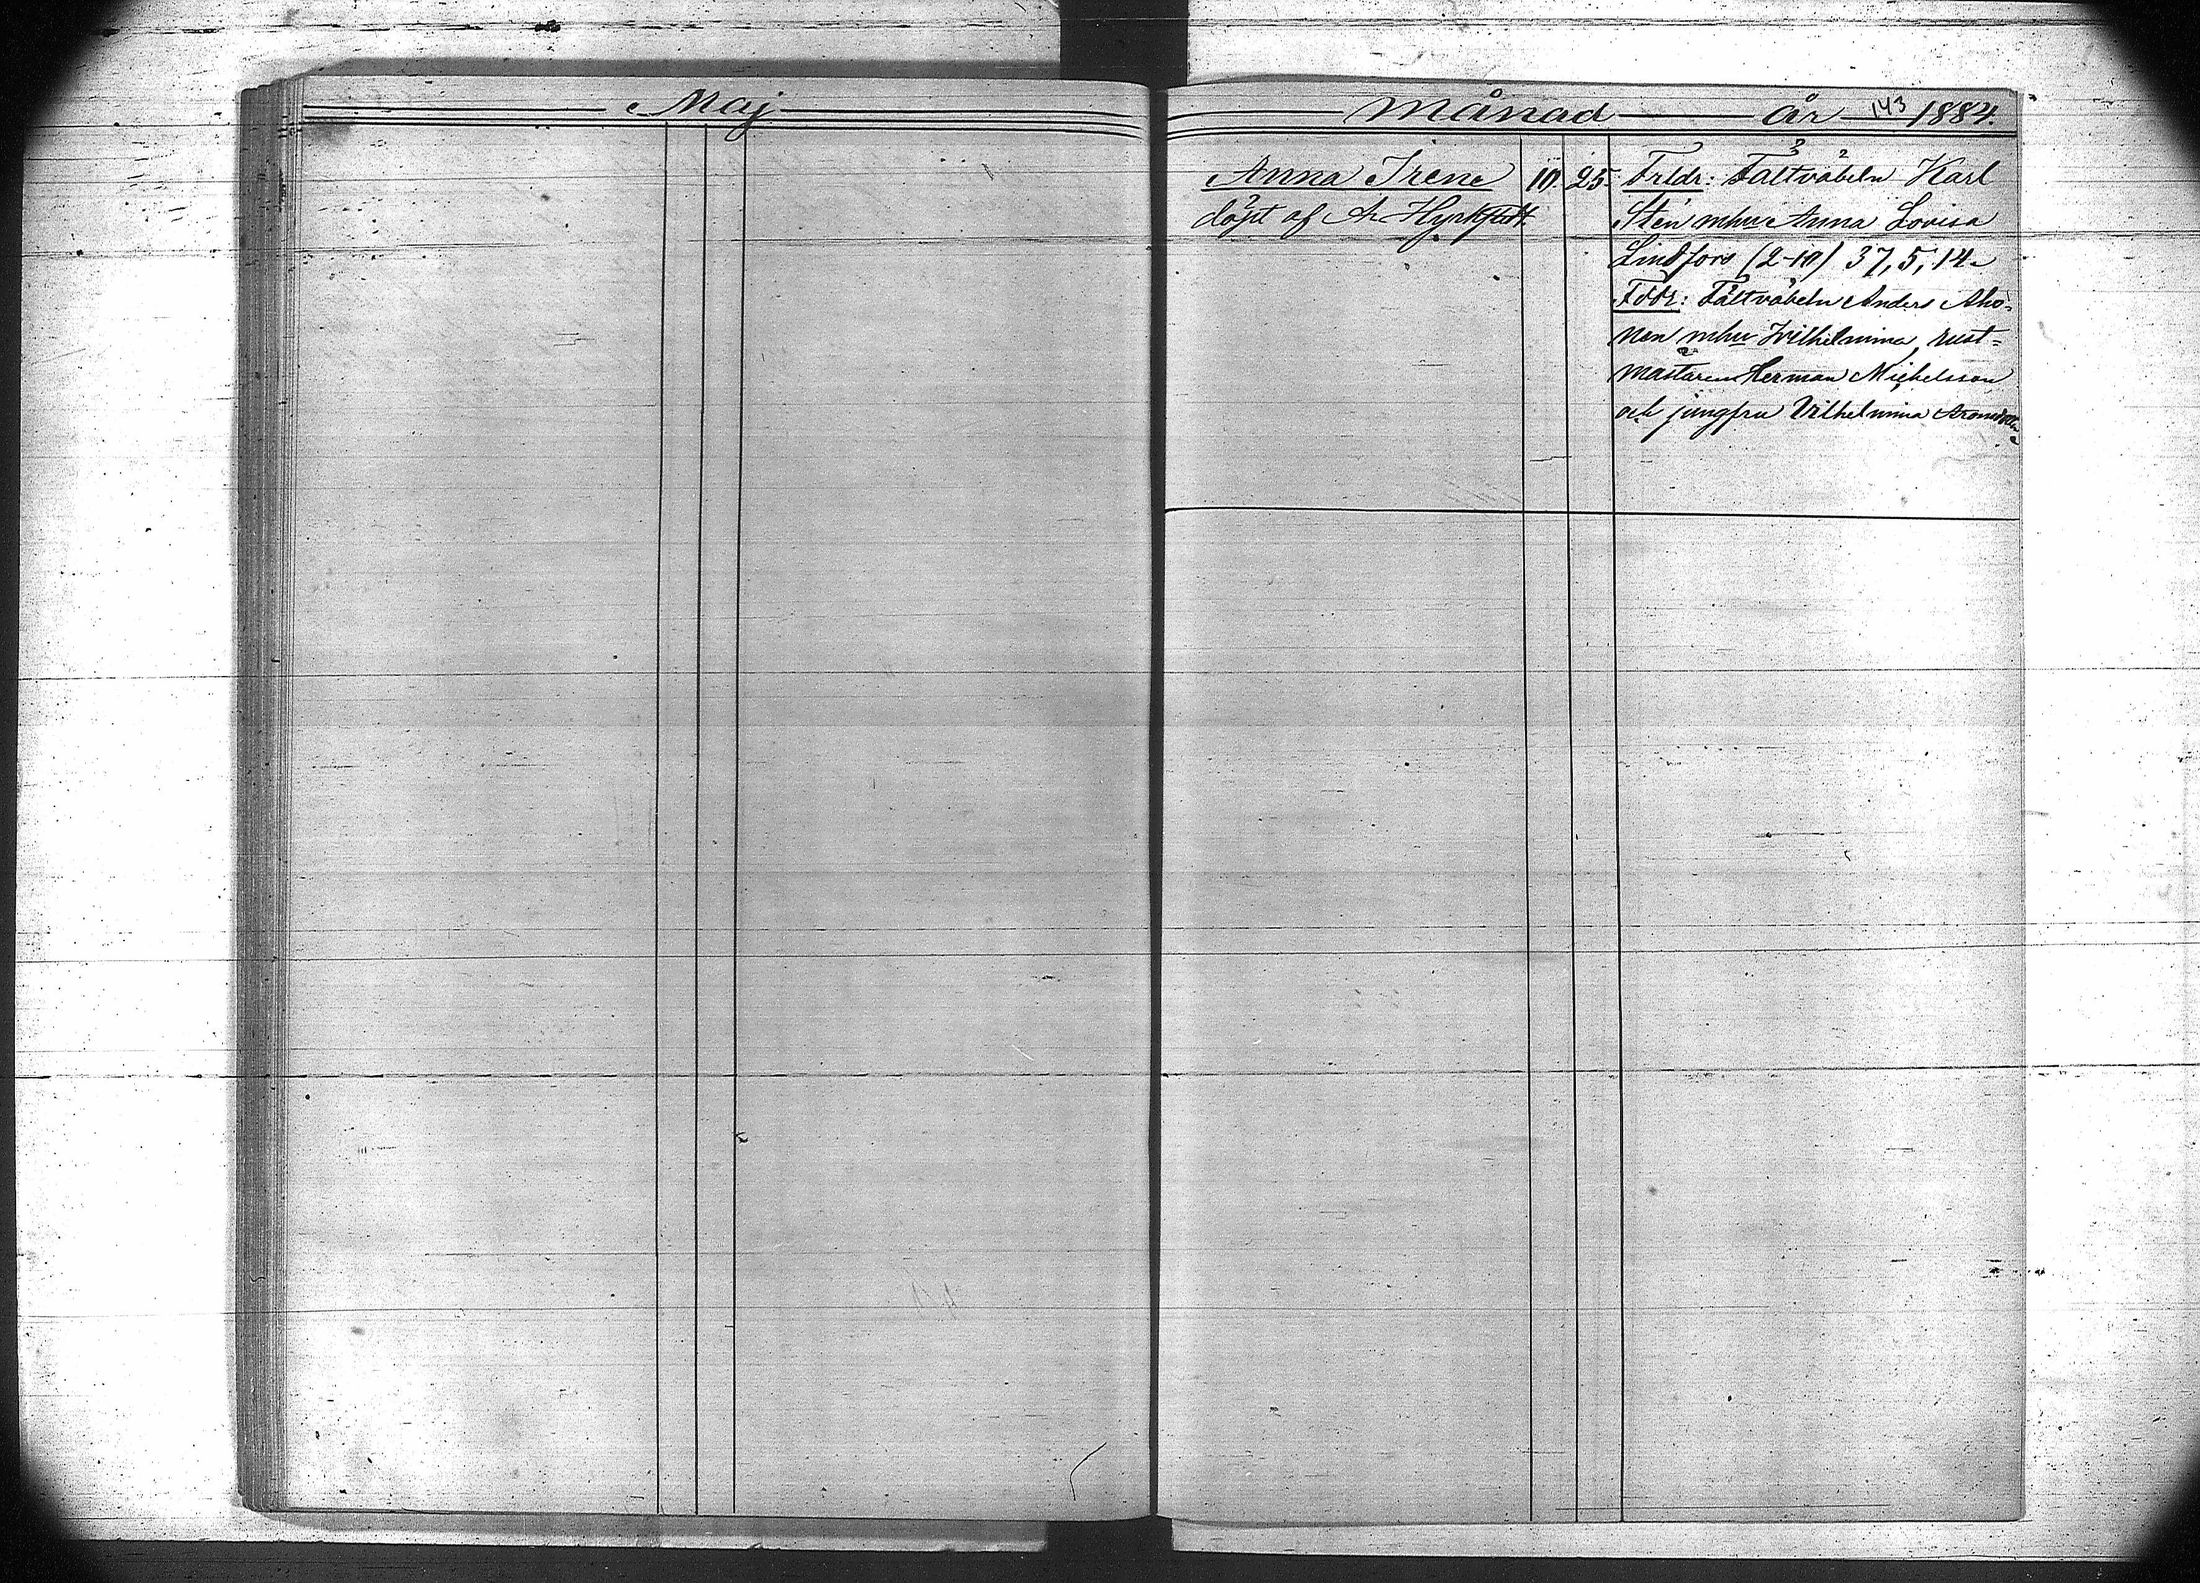 Maj
Månad år 143 1884.
Anna Irene 10. 25.
döpt af A.
Frldr: Fältväbeln Karl
Sten mhu Anna Lovisa
Lindfors (2-10) 37, 5, 14.
Fddr: Fältväbeln Anders Aho-
nen mhu Wilhelmina, rust=
mästaren Herman Michelsson
och jungfru Vilhelmina